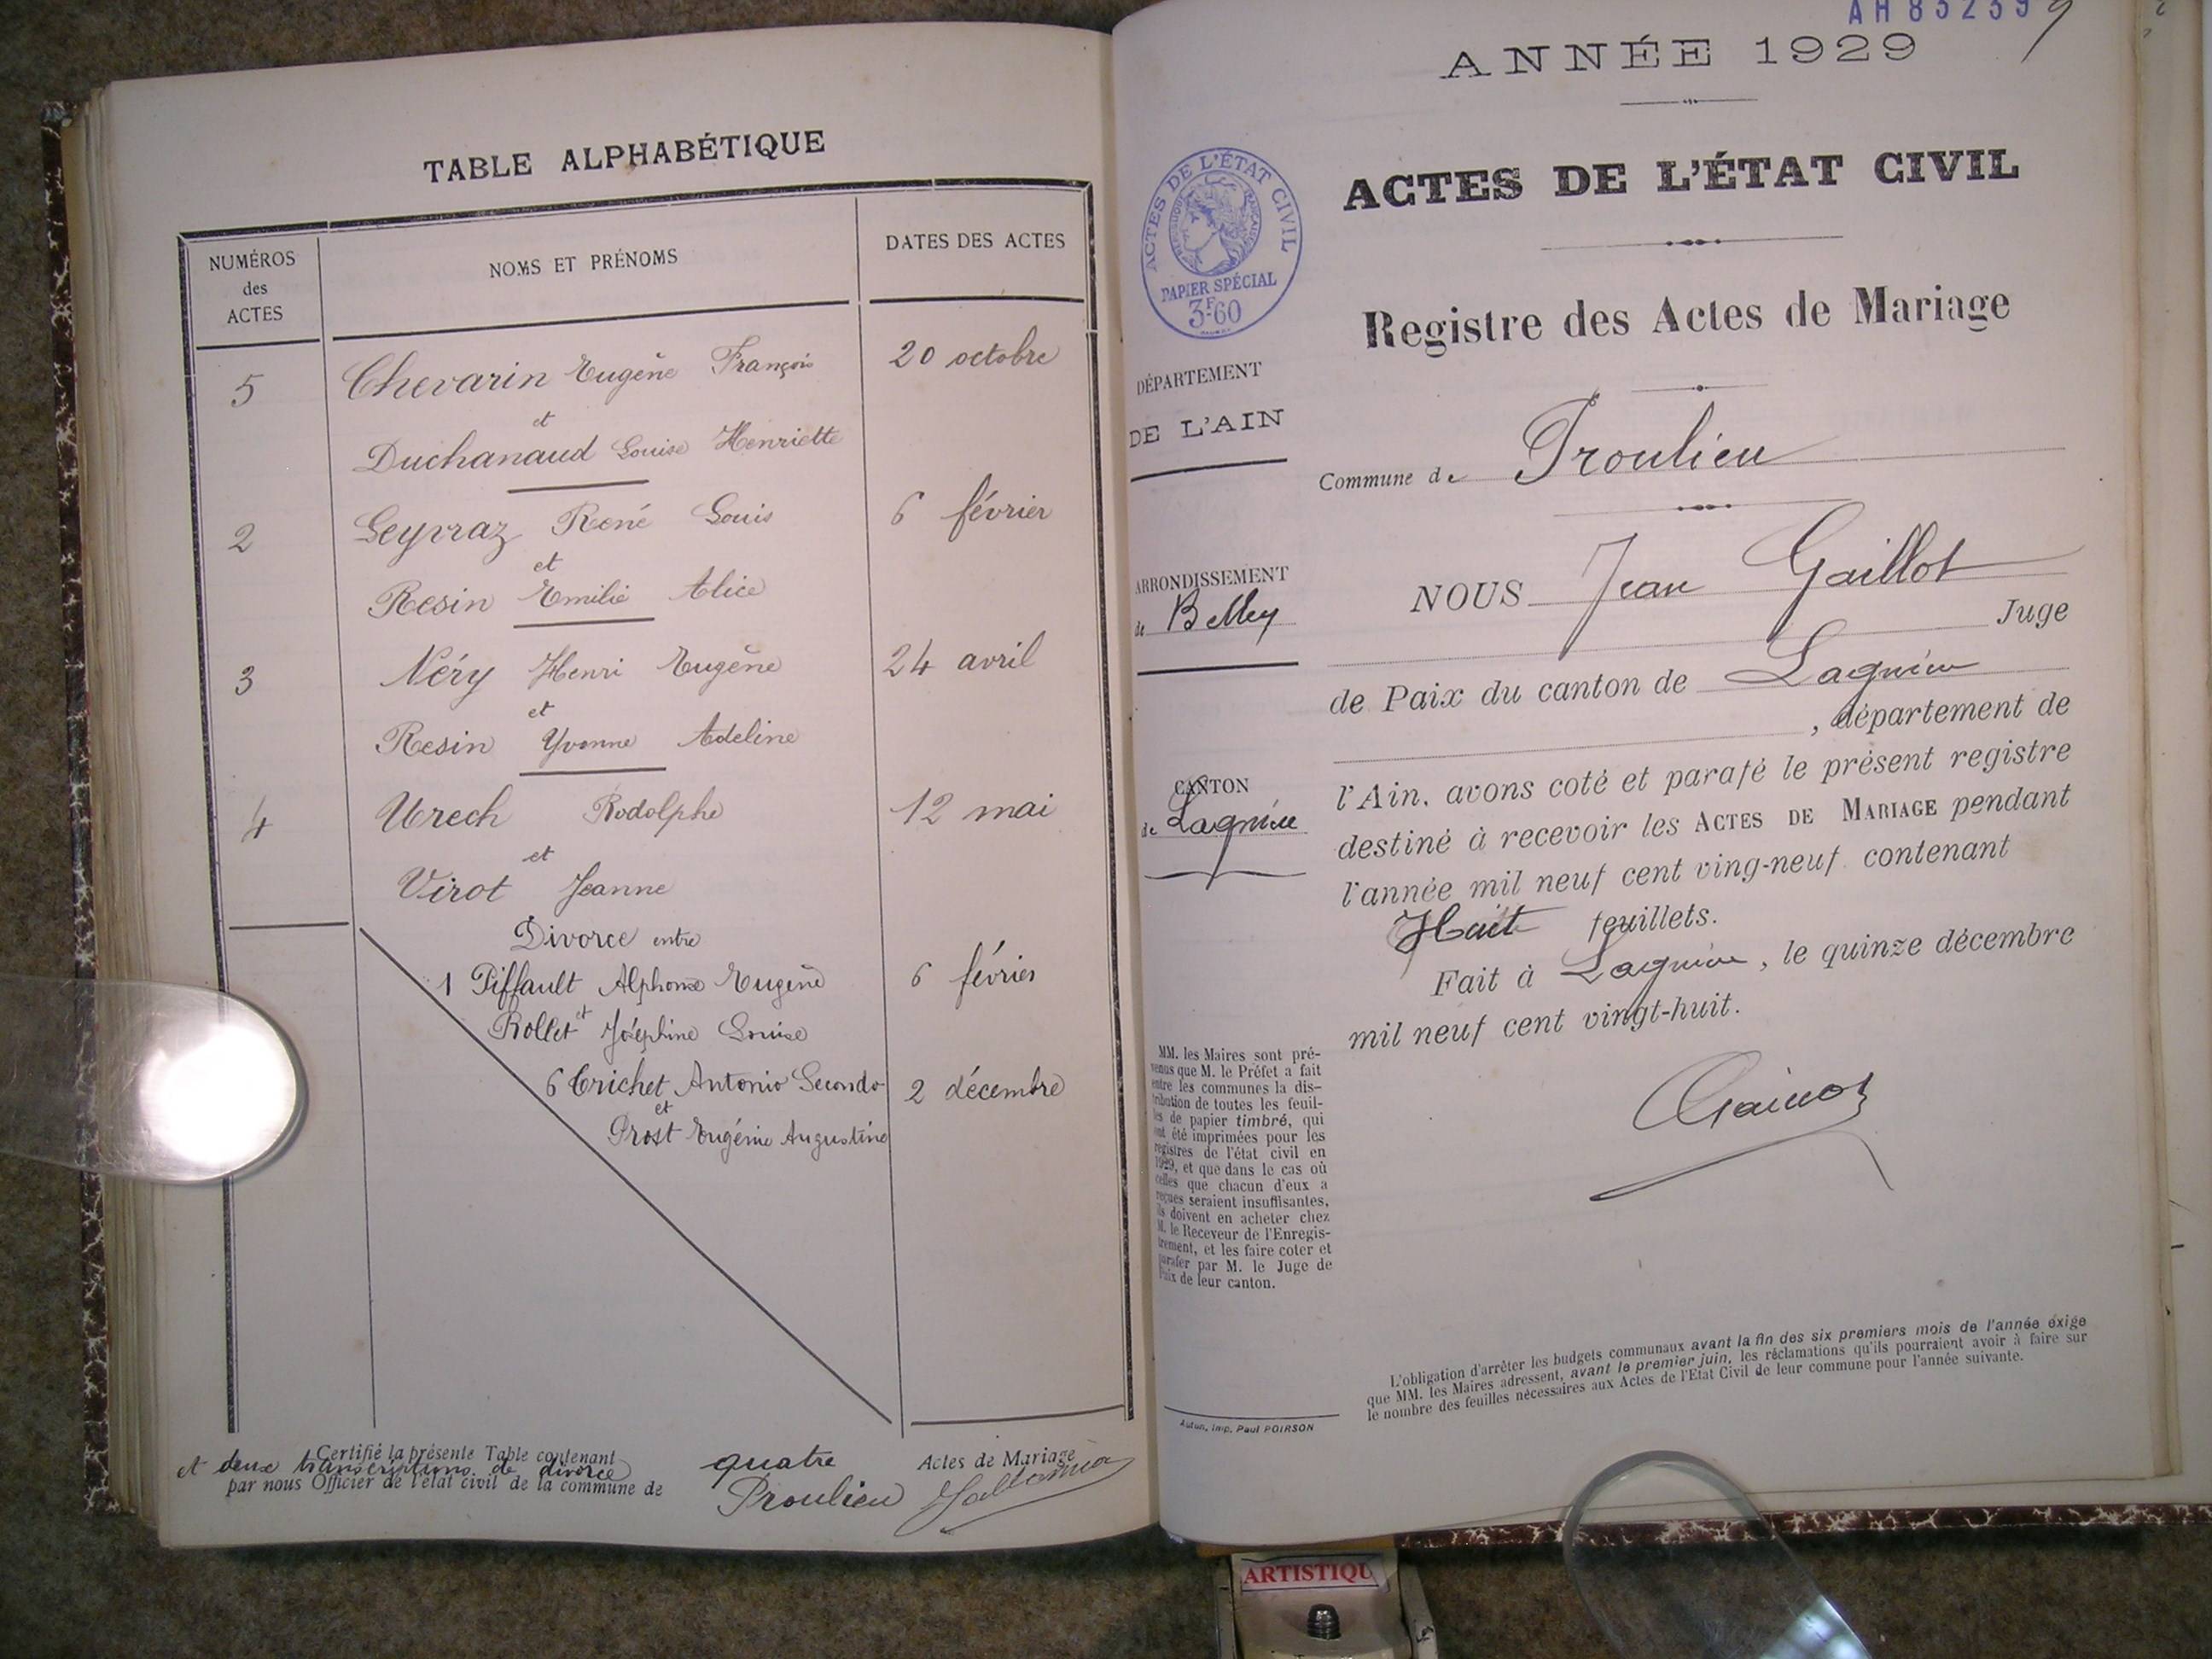 TABLE ALPHABÉTIQUE
NUMÉROS
des
ACTES
NOMS ET PRÉNOMS
DATES DES ACTES
5 Chevarin Eugène François 20 octobre
et
Duchanaud Louise Henriette
2 Leyvraz René Louis 6 février
et
Resin Emilie Alice
3 Néry Henri Eugène 24 avril
et
Resin Yvonne Adeline
4 Urech Rodolphe 12 mai
et
Virot Jeanne
Divorce entre
1 Piffault Alphonse Eugène 6 février
et
Rollet Joséphine Louise
6 Crichet Antonio Secondo 2 décembre
et
Prost Eugénie Augustine
Certifié la présente Table contenant quatre Actes de Mariage
et deux transcriptions de divorce
par nous Officier de l'état civil de la commune de Proulieu
AH 83239
9
ANNÉE 1929
ACTES DE L'ÉTAT CIVIL
Registre des Actes de Mariage
ACTES DE L'ÉTAT CIVIL
RÉPUBLIQUE FRANÇAISE
PAPIER SPÉCIAL
3F60
DÉPARTEMENT
DE L'AIN
ARRONDISSEMENT
de Belley
CANTON
de Lagnieu
Commune de Proulieu
NOUS Jean Gaillot
Juge
de Paix du canton de Lagnieu
, département de
l'Ain, avons coté et parafé le présent registre
destiné à recevoir les ACTES DE MARIAGE pendant
l'année mil neuf cent ving-neuf contenant
Huit feuillets.
Fait à Lagnieu, le quinze décembre
mil neuf cent vingt-huit.
MM. les Maires sont pré-
venus que M. le Préfet a fait
entre les communes la dis-
tribution de toutes les feuil-
les de papier timbré, qui
ont été imprimées pour les
registres de l'état civil en
1929, et que dans le cas où
celles que chacun d'eux a
reçues seraient insuffisantes,
ils doivent en acheter chez
M. le Receveur de l'Enregis-
trement, et les faire coter et
parafer par M. le Juge de
Paix de leur canton.
Autun, Imp. Paul POIRSON
L'obligation d'arrêter les budgets communaux avant la fin des six premiers mois de l'année éxige
que MM. les Maires adressent, avant le premier juin, les réclamations qu'ils pourraient avoir à faire sur
le nombre des feuilles nécessaires aux Actes de l'Etat Civil de leur commune pour l'année suivante.
ARTISTIQU